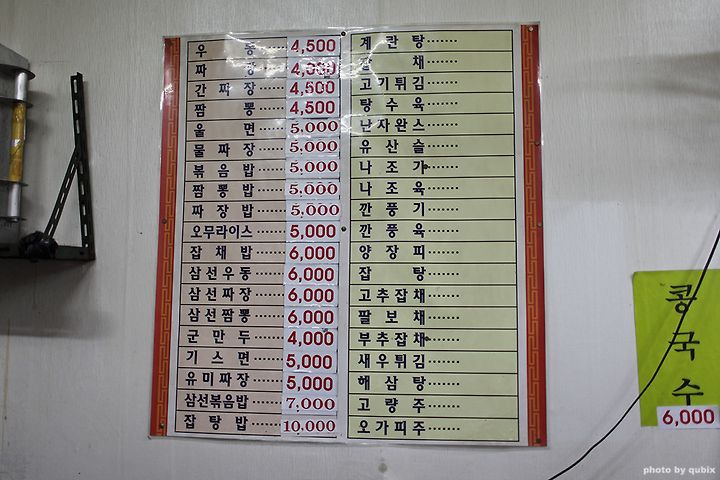 우 동 ······ 4,500
짜 장 ······ 4,000
간 짜 장 ······ 4,500
짬 뽕 ······ 4,500
울 면 ······ 5,000
물 짜 장 ······ 5,000
볶 음 밥 ······ 5,000
짬 뽕 밥 ······ 5,000
짜 장 밥 ······ 5,000
오무라이스 ······ 5,000
잡 채 밥 ······ 6,000
삼선우동 ······ 6,000
삼선짜장 ······ 6,000
삼선짬뽕 ······ 6,000
군 만 두 ······ 4,000
기 스 면 ······ 5,000
유미짜장 ······ 5,000
삼선볶음밥 ······ 7,000
잡 탕 밥 ······ 10,000
계 란 탕 ·······
잡 채 ·······
고기튀김 ·······
탕 수 육 ·······
난자완스 ·······
유 산 슬 ·······
나 조 기 ·······
나 조 육 ·······
깐 풍 기 ·······
깐 풍 육 ·······
양 장 피 ·······
잡 탕 ·······
고추잡채 ·······
팔 보 채 ·······
부추잡채 ·······
새우튀김 ·······
해 삼 탕 ·······
고 량 주 ·······
오가피주 ·······
콩국수
6,000
photo by qubix